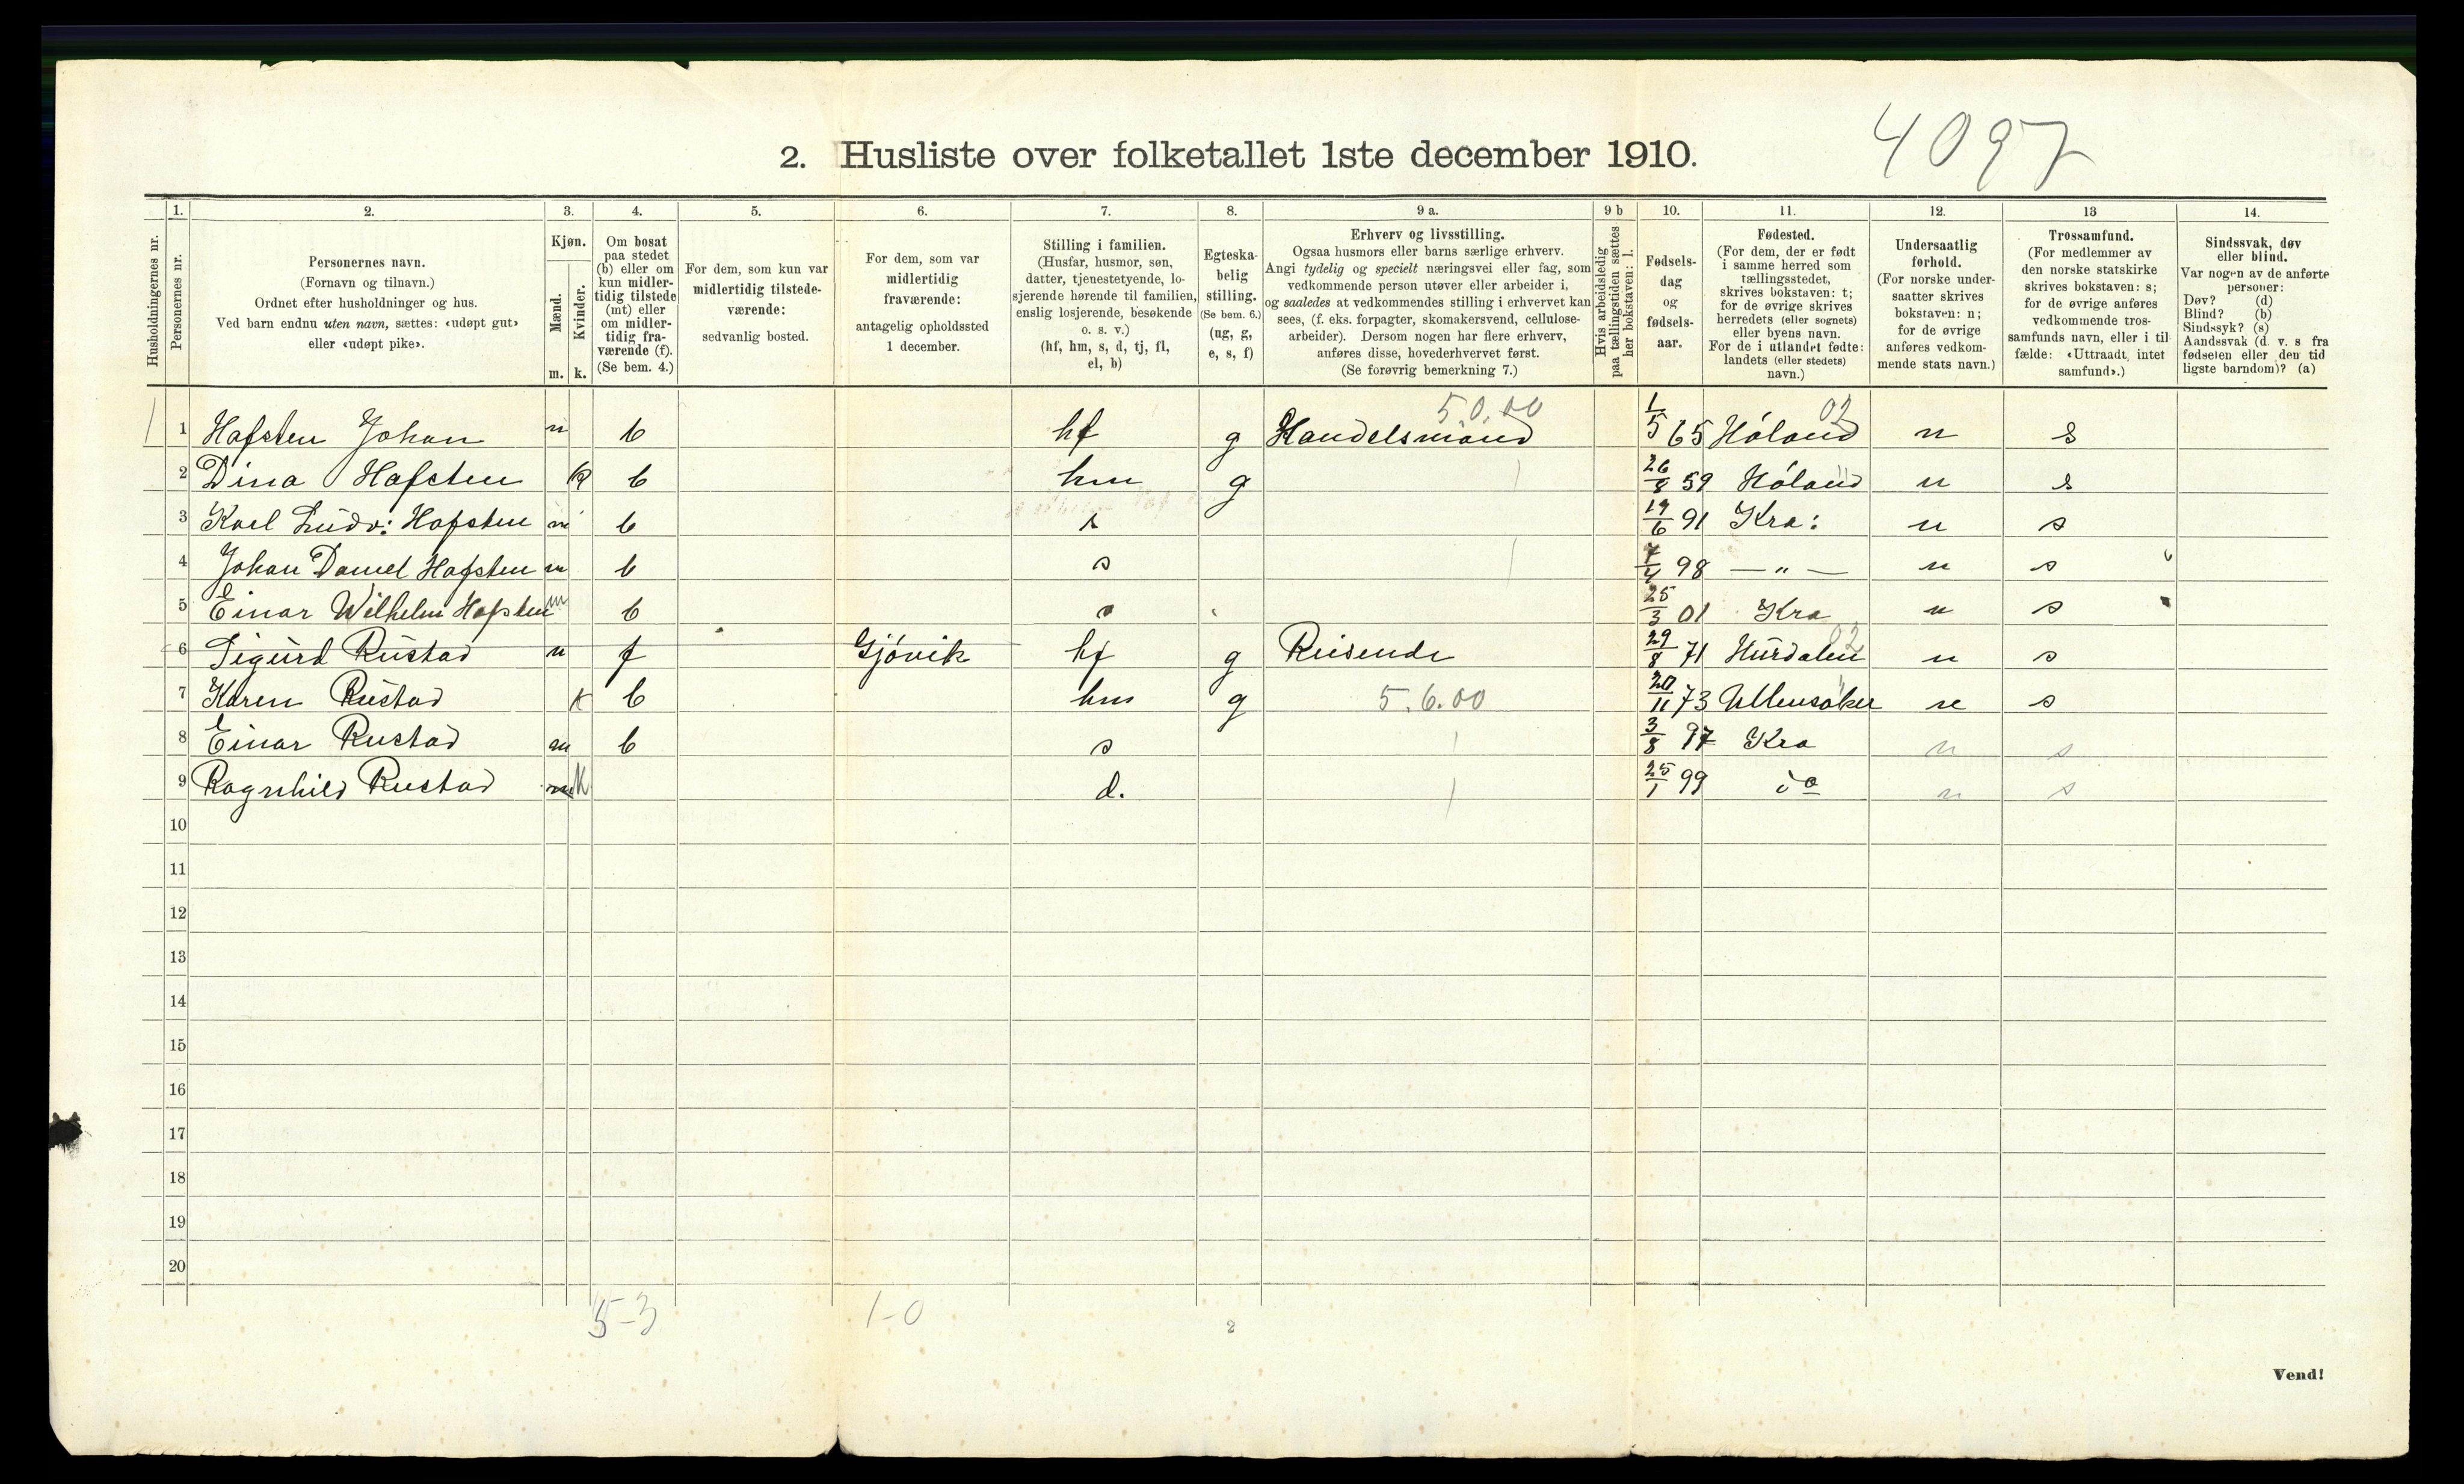 4097
2. Husliste over folketallet 1ste december 1910.
Husholdningernes nr.
1. Personernes nr.
2.
Personernes navn.
(Fornavn og tilnavn.)
Ordnet efter husholdninger og hus.
Ved barn endnu uten navn, sættes: «udøpt gut»
eller «udøpt pike».
3.
Kjøn.
Mænd. Kvinder.
m. k.
4.
Om bosat
paa stedet
(b) eller om
kun midler-
tidig tilstede
(mt) eller
om midler-
tidig fra-
værende (f).
(Se bem. 4.)
5.
For dem, som kun var
midlertidig tilstede-
værende:
sedvanlig bosted.
6.
For dem, som var
midlertidig
fraværende:
antagelig opholdssted
1 december.
7.
Stilling i familien.
(Husfar, husmor, søn,
datter, tjenestetyende, lo-
sjerende hørende til familien,
enslig losjerende, besøkende
o. s. v.)
(hf, hm, s, d, tj, fl,
el, b)
8.
Egteska-
belig
stilling.
(Se bem. 6.)
(ug, g,
e, s, f)
9 a.
Erhverv og livsstilling.
Ogsaa husmors eller barns særlige erhverv.
Angi tydelig og specielt næringsvei eller fag, som
vedkommende person utøver eller arbeider i,
og saaledes at vedkommendes stilling i erhvervet kan
sees, (f. eks. forpagter, skomakersvend, cellulose-
arbeider). Dersom nogen har flere erhverv,
anføres disse, hovederhvervet først.
(Se forøvrig bemerkning 7.)
9 b
Hvis arbeidsledig
paa tællingstiden sættes
her bokstaven: l.
10.
Fødsels-
dag
og
fødsels-
aar.
11.
Fødested.
(For dem, der er født
i samme herred som
tællingsstedet,
skrives bokstaven: t;
for de øvrige skrives
herredets (eller sognets)
eller byens navn.
For de i utlandet fødte:
landets (eller stedets)
navn.)
12.
Undersaatlig
forhold.
(For norske under-
saatter skrives
bokstaven: n;
for de øvrige
anføres vedkom-
mende stats navn.)
13
Trossamfund.
(For medlemmer av
den norske statskirke
skrives bokstaven: s;
for de øvrige anføres
vedkommende tros-
samfunds navn, eller i til-
fælde: «Uttraadt, intet
samfund».)
14.
Sindssvak, døv
eller blind.
Var nogen av de anførte
personer:
Døv? (d)
Blind? (b)
Sindssyk? (s)
Aandssvak (d. v. s. fra
fødselen eller den tid
ligste barndom)? (a)
5.0.00 02
1 1 Hafsten Johan m b hf g Handelsmand 1/5 65 Høland n s
2 Dina Hafsten k b hm g 26/8 59 Høland n s
3 Karl Ludv: Hafsten m b s 19/6 91 Kra: n s
4 Johan Daniel Hafsten m b s 7/4 98 — " — n s
5 Einar Wilhelm Hafsten m b s 25/3 01 Kra n s
6 Sigurd Rustad m f Gjøvik hf g Reisende 29/8 71 Hurdalen 02 n s
7 Karen Rustad k b hm g 5.6.00 20/11 73 Ullensaker n s
8 Einar Rustad m b s 3/8 97 Kra n s
9 Ragnhild Rustad m k d. 25/1 99 do n s
10
11
12
13
14
15
16
17
18
19
20
5-3 1-0
2
Vend!